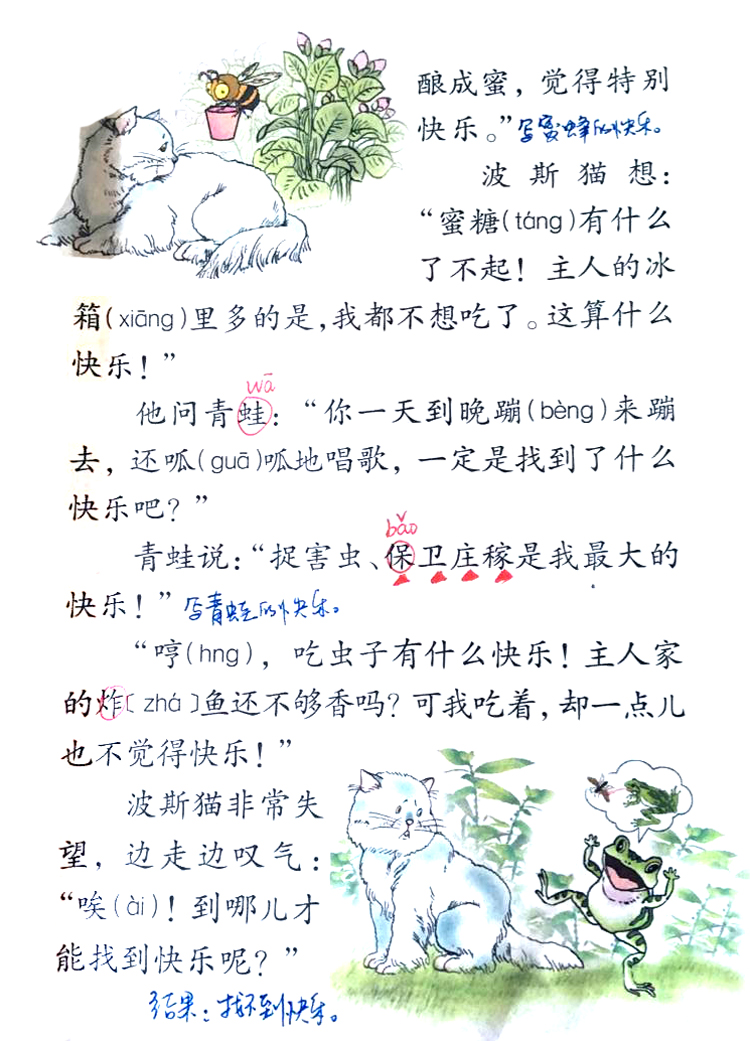 酿成蜜，觉得特别
快乐。”写蜜蜂的快乐。
波斯猫想：
“蜜糖(táng)有什么
了不起！主人的冰
箱(xiāng)里多的是，我都不想吃了。这算什么
快乐！”
wā
他问青蛙：“你一天到晚蹦(bèng)来蹦
去，还呱(guā)呱地唱歌，一定是找到了什么
快乐吧？”
bǎo
青蛙说：“捉害虫、保卫庄稼是我最大的
快乐！”写青蛙的快乐。
“哼(hng)，吃虫子有什么快乐！主人家
的炸〔zhá〕鱼还不够香吗？可我吃着，却一点儿
也不觉得快乐！”
波斯猫非常失
望，边走边叹气：
“唉(ài)！到哪儿才
能找到快乐呢？”
结果：找不到快乐。